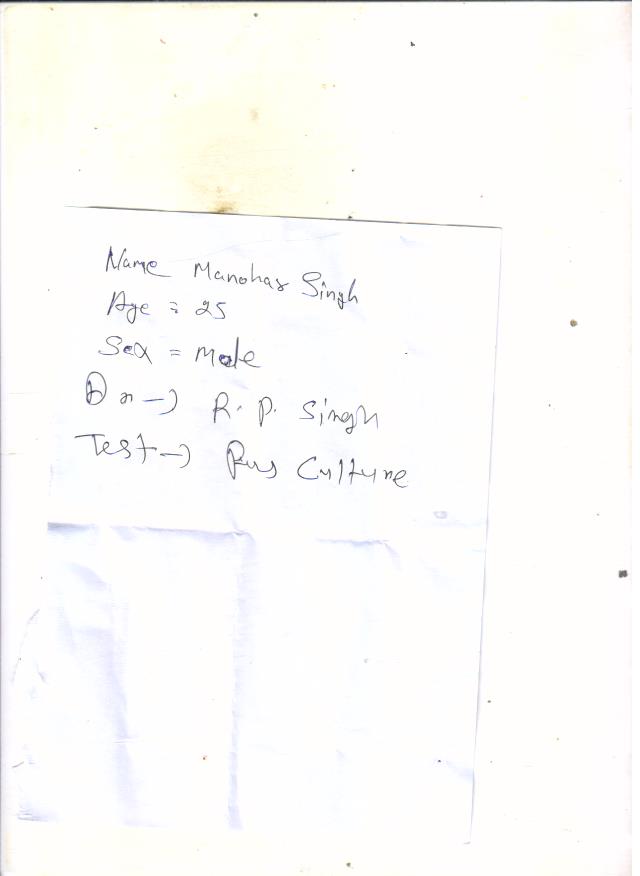 Name Manohar Singh
Age = 25
Sex = Male
Dr → R. P. Singh
Test → Pus Culture